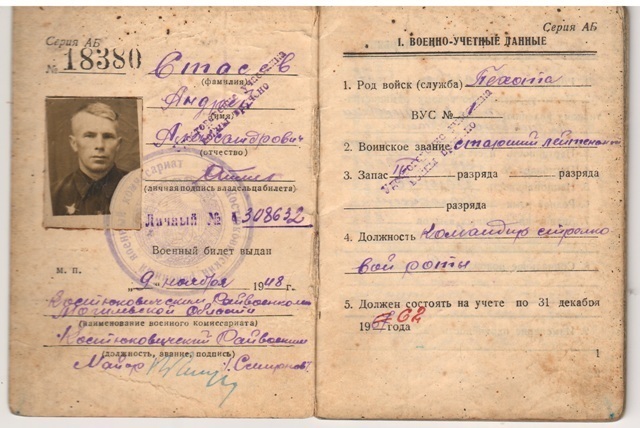 Серия АБ
№ 18380
Стасев
(фамилия)
Андрей
(имя)
Александрович
(отчество)
(личная подпись владельца билета)
Личный № 308632
Военный билет выдан
м. п.
„9" ноября 1948 г.
Костюковичским Райвоенкоматом
Могилевской области
(наименование военного комиссариата)
Костюковичский Райвоенком
(должность, звание, подпись)
Майор
Серия АБ
I. ВОЕННО-УЧЕТНЫЕ ДАННЫЕ
1. Род войск (служба) Пехота
ВУС №
2. Воинское звание старший лейтенант
3. Запас разряда разряда
разряда
4. Должность Командир стрелко
вой роты
5. Должен состоять на учете по 31 декабря
1962 года
1